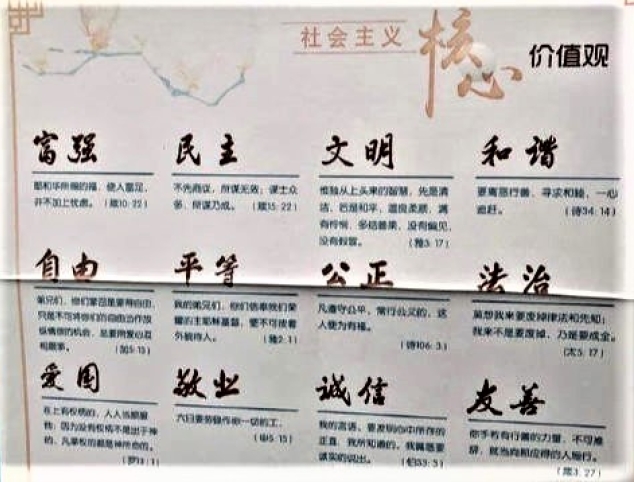 社会主义
核心
价值观
富强
耶和华所赐的福，使人富足，
并不加上忧虑。（箴10:22）
民主
不先商议，所谋无效；谋士众
多，所谋乃成。（箴15:22）
文明
惟独从上头来的智慧，先是清
洁，后是和平，温良柔顺，满
有怜悯，多结善果，没有偏见，
没有假冒。（雅3:17）
和谐
要离恶行善，寻求和睦，一心
追赶。（诗34:14）
自由
弟兄们，你们蒙召是要得自由，
只是不可将你们的自由当作放
纵情欲的机会，总要用爱心互
相服事。（加5:13）
平等
我的弟兄们，你们信奉我们荣
耀的主耶稣基督，便不可按着
外貌待人。（雅2:1）
公正
凡遵守公平，常行公义的，这
人便为有福。
（诗106:3）
法治
莫想我来要废掉律法和先知；
我来不是要废掉，乃是要成全。
（太5:17）
爱国
在上有权柄的，人人当顺服
他；因为没有权柄不是出于神
的，凡掌权的都是神所命的。
（罗13:1）
敬业
六日要劳碌作你一切的工，
（申5:13）
诚信
我的言语，要发明心中所存的
正直，我所知道的，我嘴唇要
诚实的说出。（伯33:3）
友善
你手若有行善的力量，不可推
辞，就当向那应得的人施行。
（箴3:27）